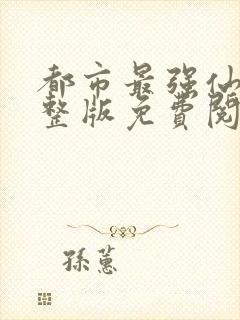 都市最强仙
整版免費閱
孫蕙